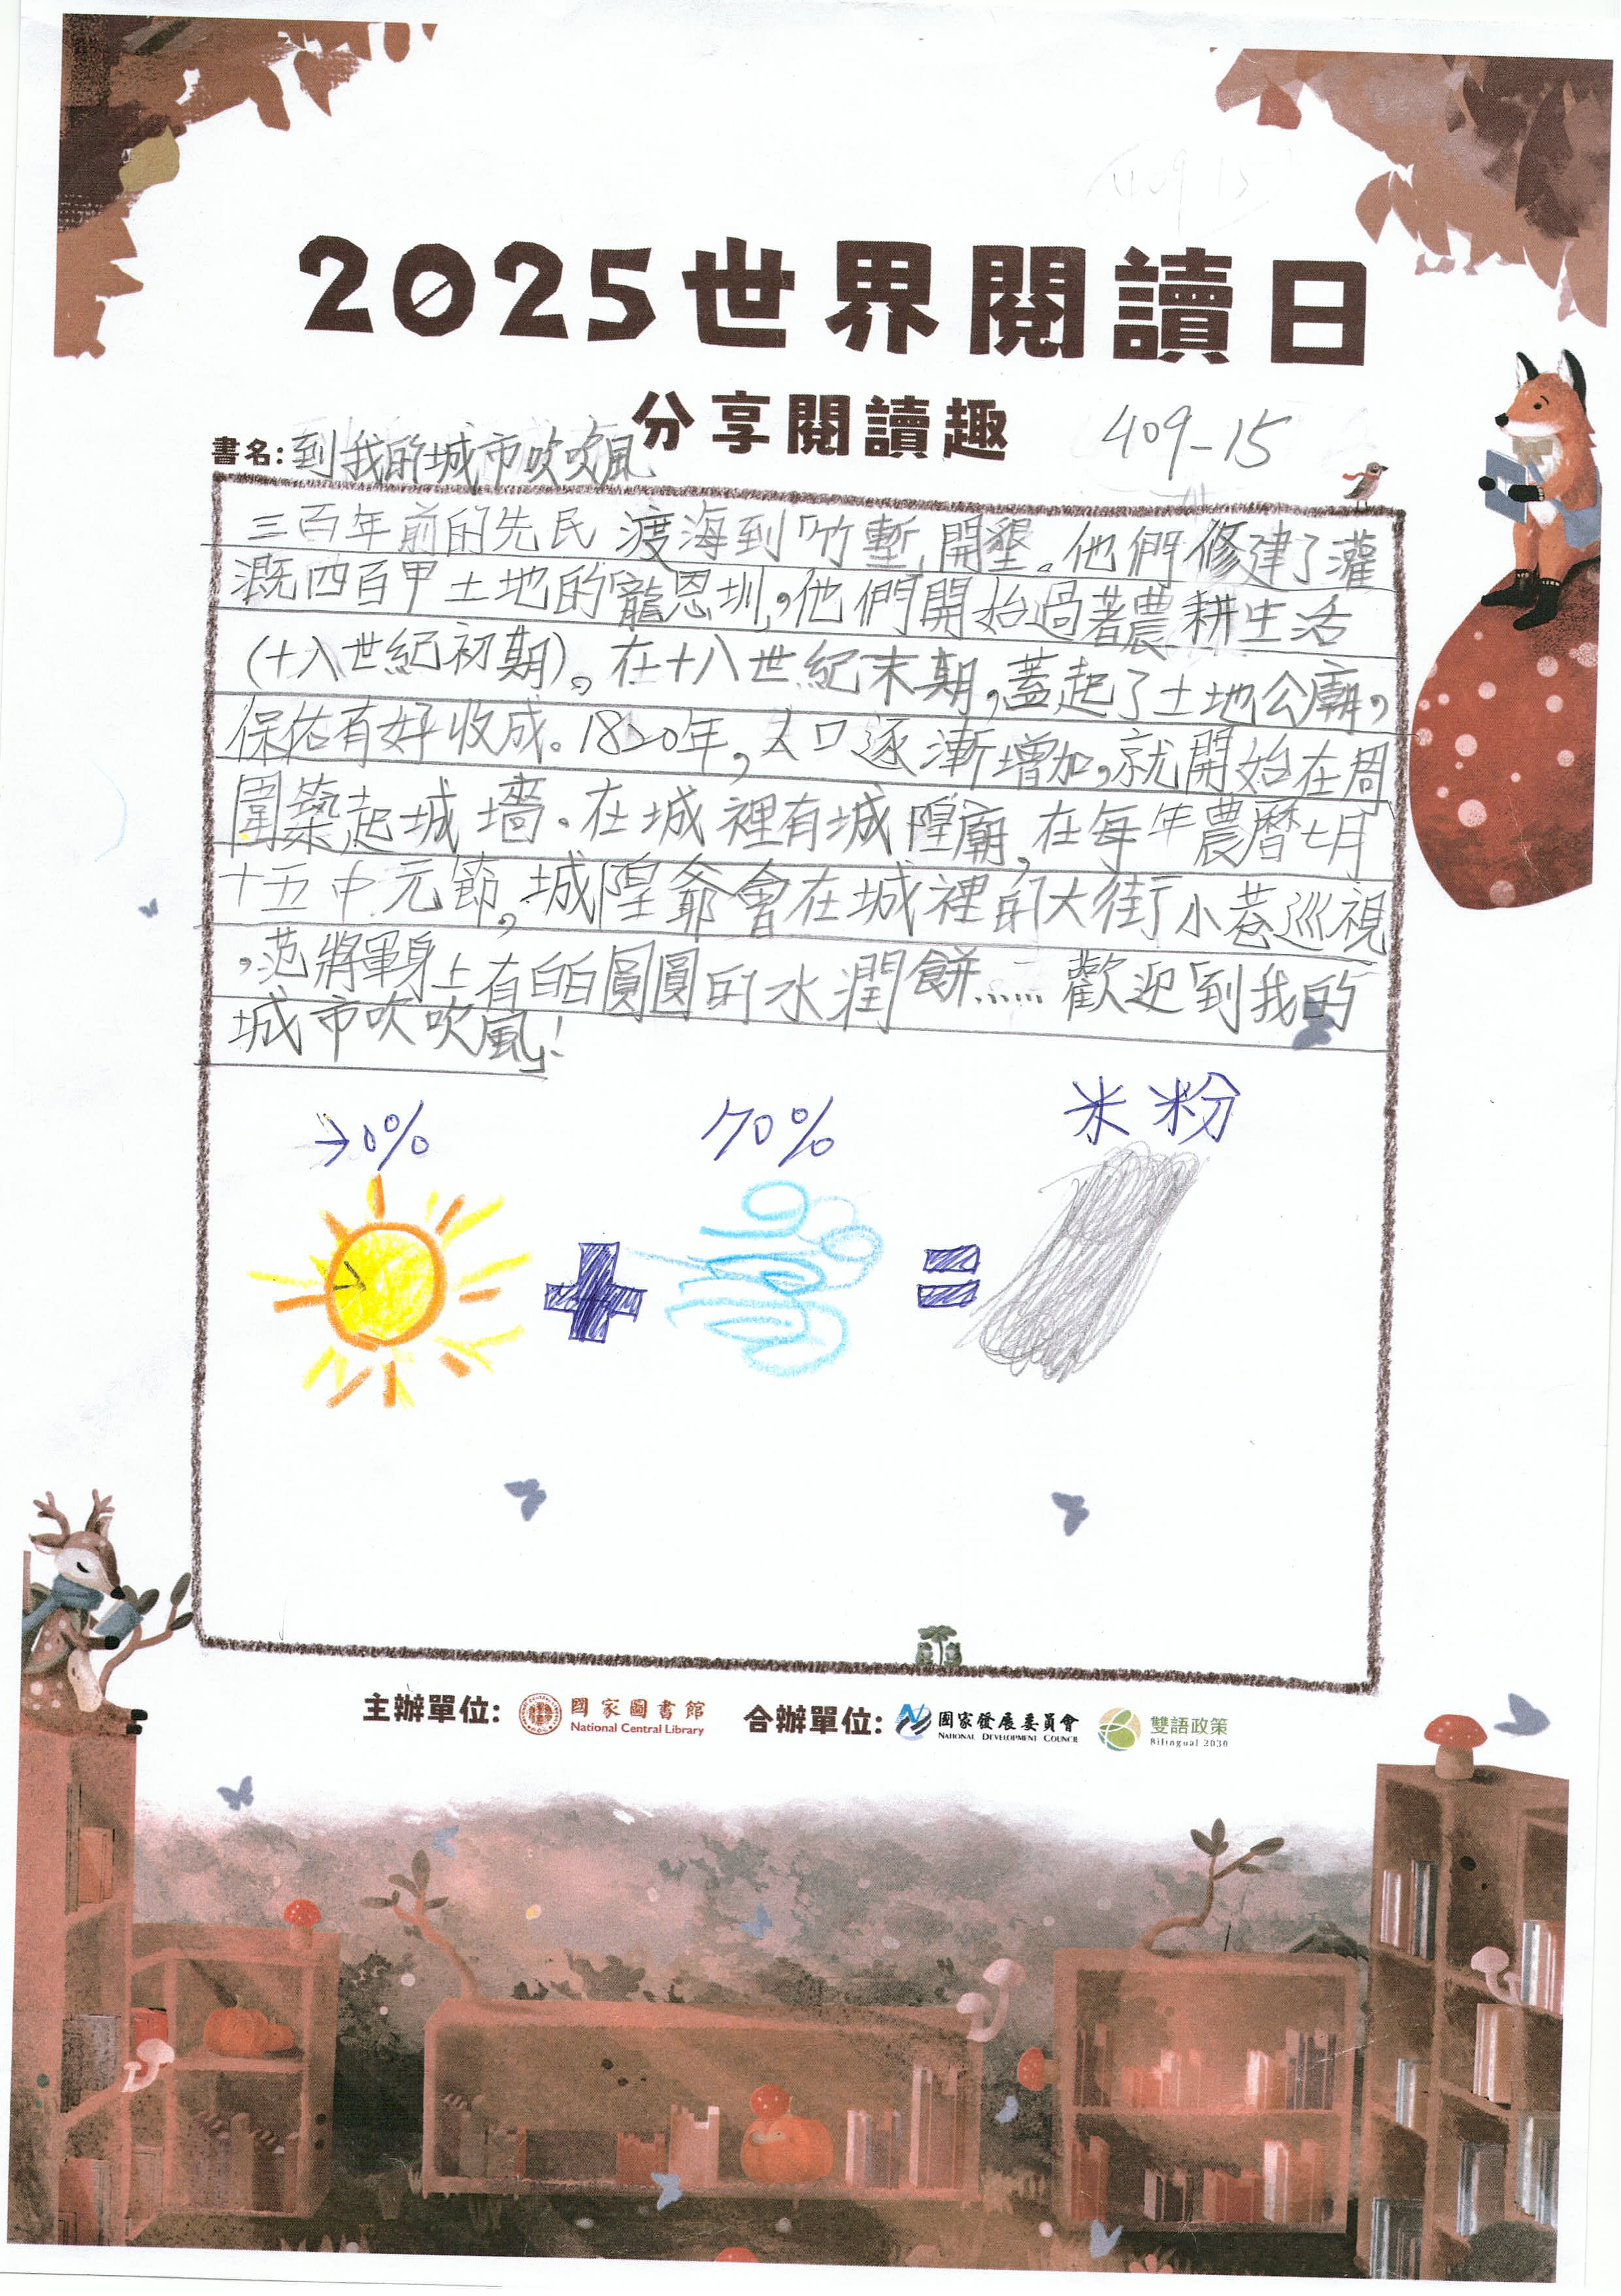 2025世界閱讀日
分享閱讀趣
409-15
書名:到我的城市吹吹風
三百年前的先民渡海到「竹塹」開墾。他們修建了灌
溉四百甲土地的「龍恩圳」,他們開始過著農耕生活
(十八世紀初期)。在十八世紀末期,蓋起了土地公廟,
保佑有好收成。1820年,人口逐漸增加,就開始在周
圍築起城牆。在城裡有城隍廟,在每年農曆七月
十五中元節,城隍爺會在城裡的大街小巷巡視
,范將軍身上有白白圓圓的水潤餅......歡迎「到我的
城市吹吹風」!
70%
米粉
主辦單位: 國家圖書館 National Central Library 合辦單位: 國家發展委員會 NATIONAL DEVELOPMENT COUNCIL 雙語政策 Bilingual 2030